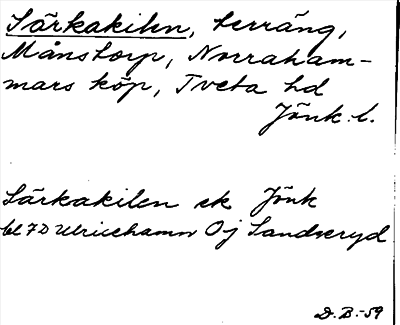 Särkakilen, terräng,
Månstorp, Norraham-
mars köp, Tveta hd
Jönk. l.
Särkakilen ek Jönk
bl 7D Ulricehamn Öj Sandseryd
D. B. -59